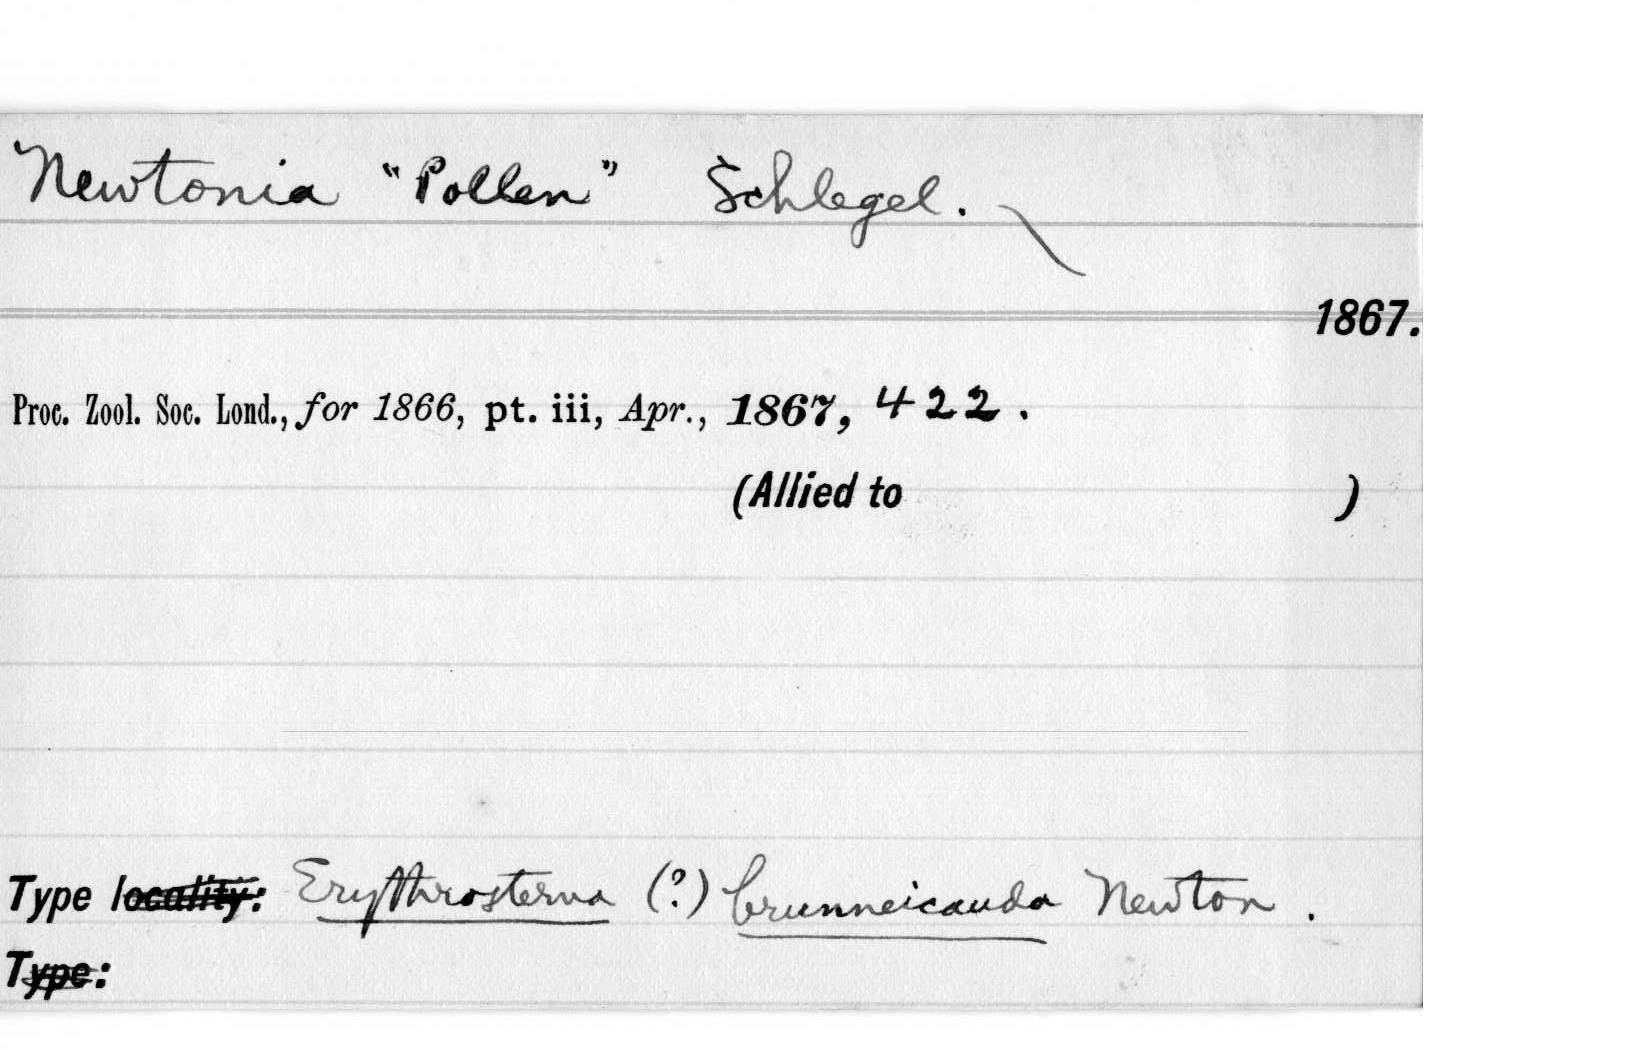 Newtonia "Pollen" Schlegel.
1867.
Proc. Zool. Soc. Lond., for 1866, pt. iii, Apr., 1867, 422.
(Allied to )
Type locality: Erythrosterna (?) brunneicauda Newton.
Type: